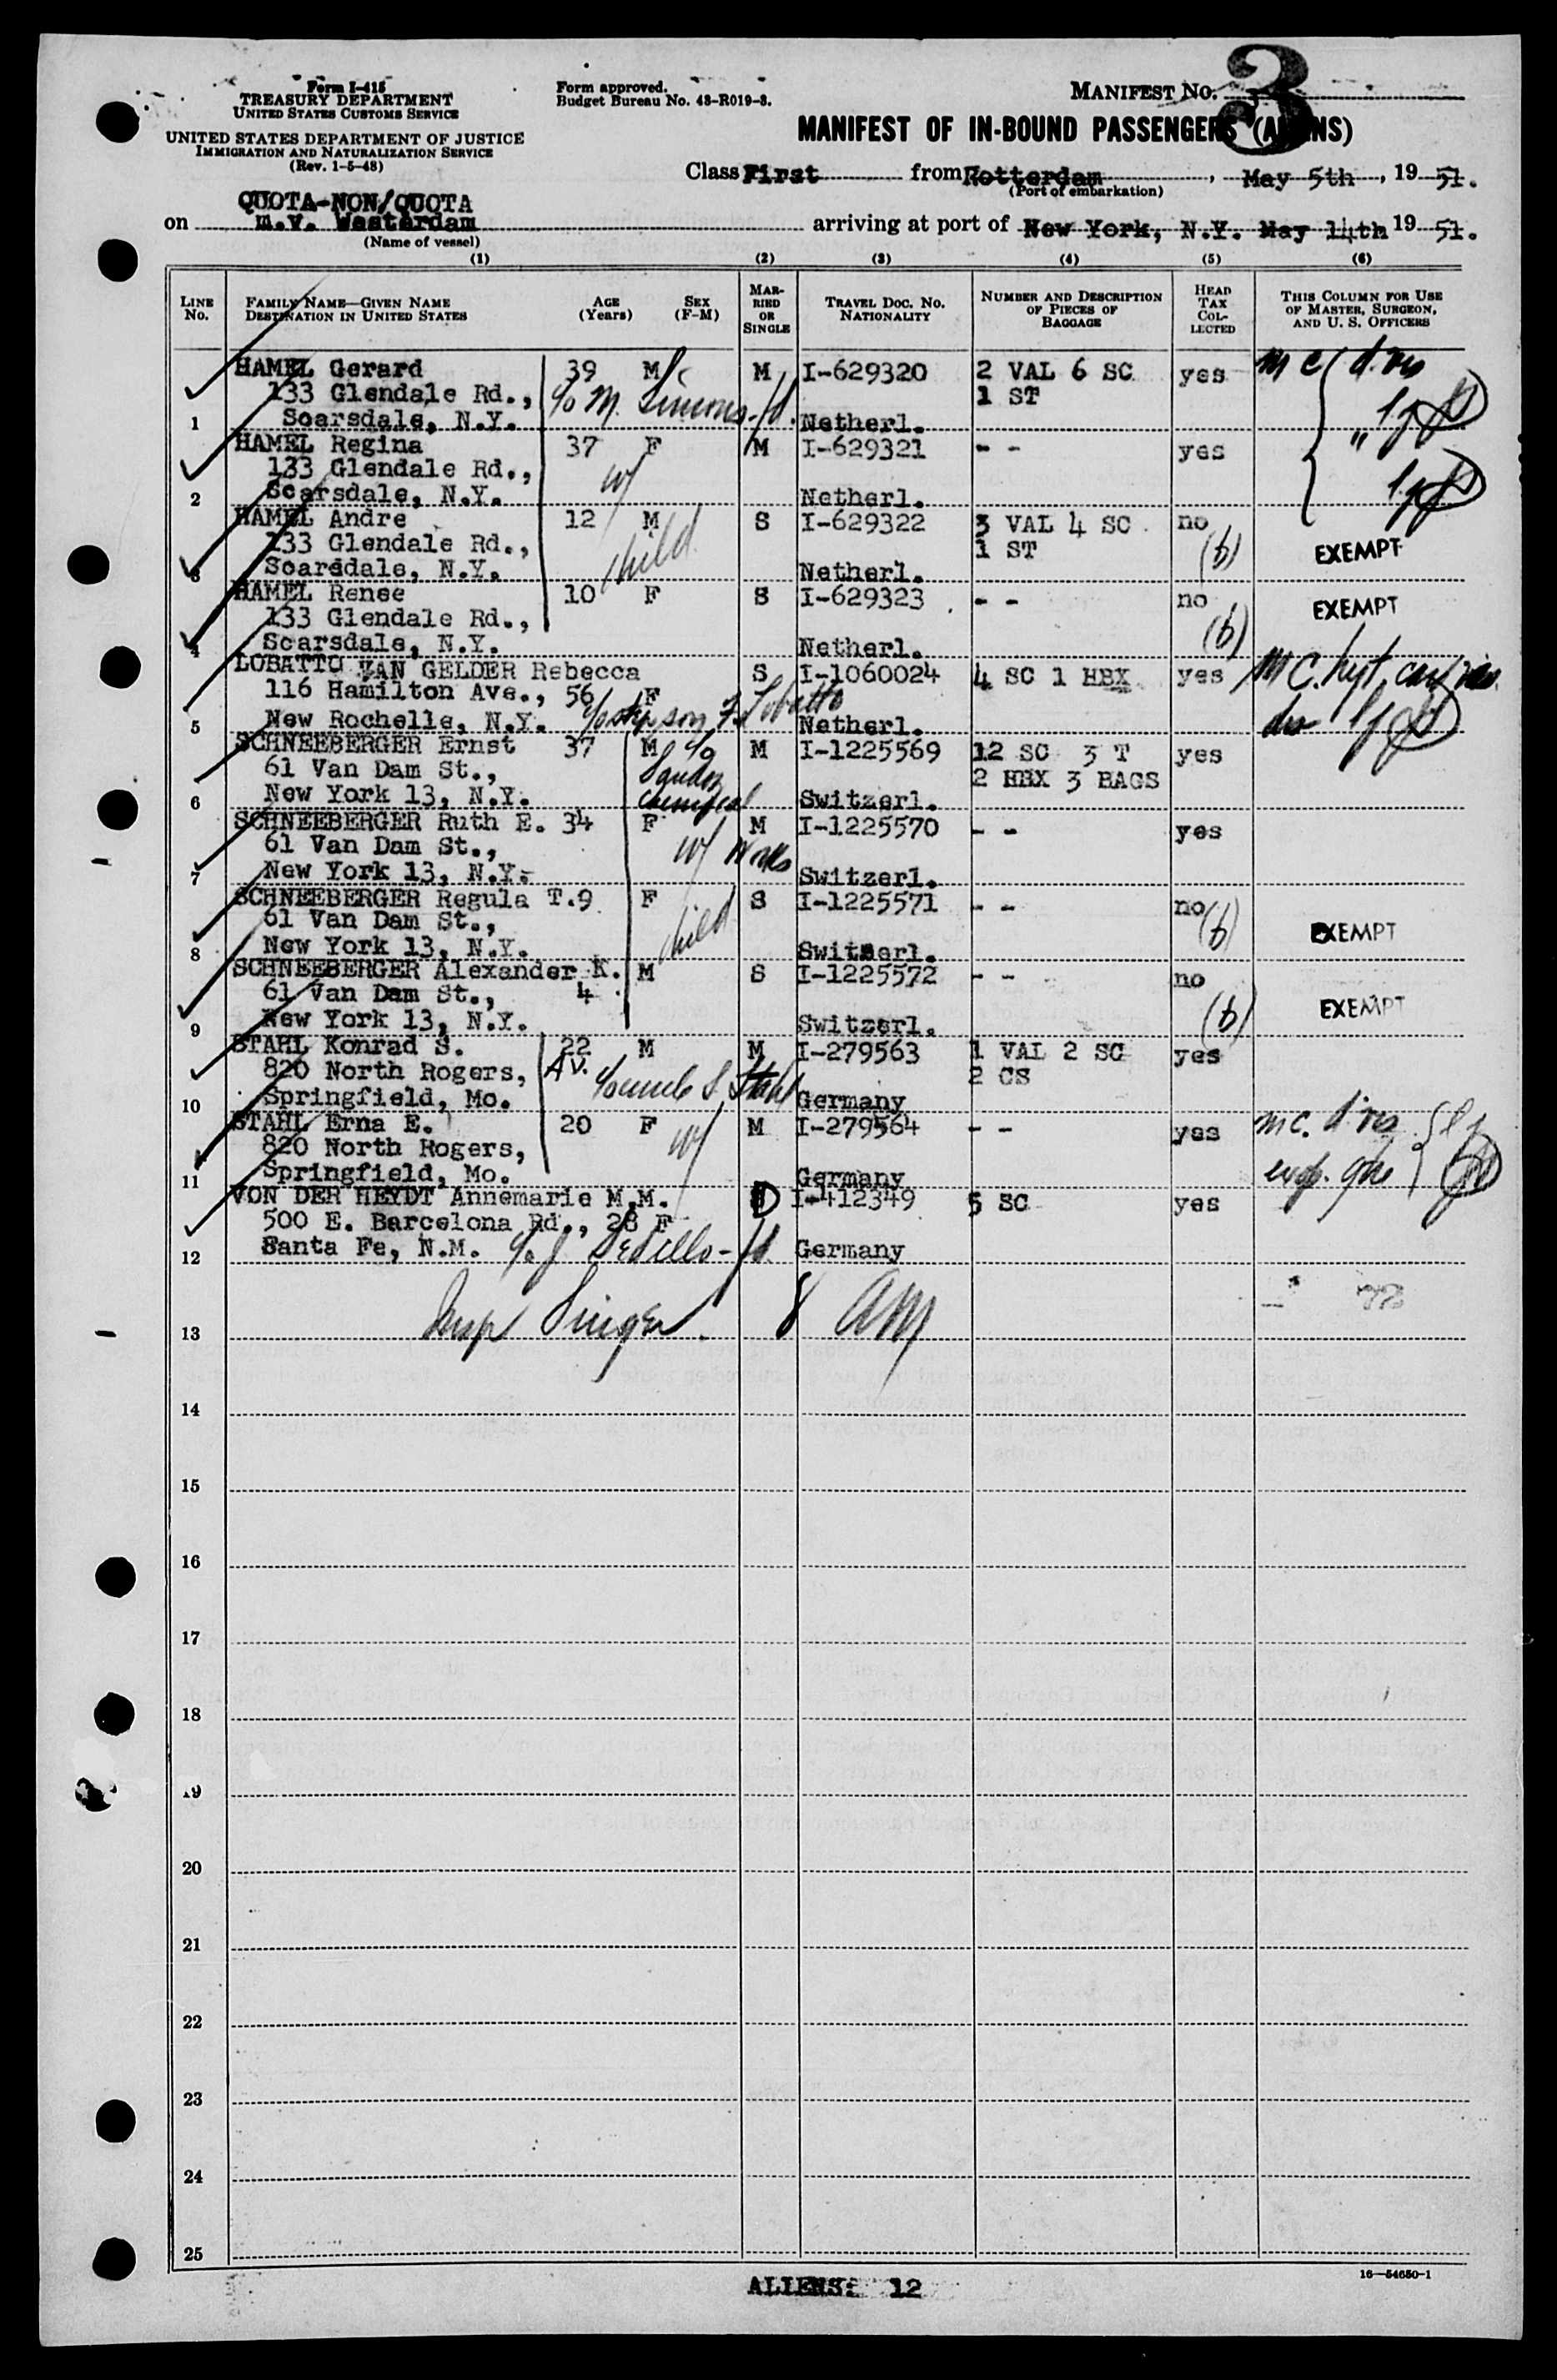 Form I-415
TREASURY DEPARTMENT
UNITED STATES CUSTOMS SERVICE
UNITED STATES DEPARTMENT OF JUSTICE
IMMIGRATION AND NATURALIZATION SERVICE
(Rev. 1-5-48)
Form approved.
Budget Bureau No. 43-R019-3.
MANIFEST NO. 3
MANIFEST OF IN-BOUND PASSENGERS (ALIENS)
Class First from Rotterdam, May 5th, 19 51.
(Port of embarkation)
QUOTA-NON/QUOTA
on m.v. Westerdam arriving at port of New York, N.Y. May 14th 19 51.
(Name of vessel)
(1) (2) (3) (4) (5) (6)
LINE No.
FAMILY NAME—GIVEN NAME
DESTINATION IN UNITED STATES
AGE (Years)
SEX (F-M)
MARRIED OR SINGLE
TRAVEL DOC. NO.
NATIONALITY
NUMBER AND DESCRIPTION OF PIECES OF BAGGAGE
HEAD TAX COLLECTED
THIS COLUMN FOR USE OF MASTER, SURGEON, AND U. S. OFFICERS
HAMEL Gerard 39 M M I-629320 2 VAL 6 SC yes
133 Glendale Rd., c/o M. Simons 1 ST
1 Scarsdale, N.Y. Netherl.
HAMEL Regina 37 F M I-629321 - - yes
133 Glendale Rd., w/
2 Scarsdale, N.Y. Netherl.
HAMEL Andre 12 M S I-629322 3 VAL 4 SC no
133 Glendale Rd., child 1 ST (b) EXEMPT
3 Scarsdale, N.Y. Netherl.
HAMEL Renee 10 F S I-629323 - - no EXEMPT
133 Glendale Rd., (b)
4 Scarsdale, N.Y. Netherl.
LOBATTO VAN GELDER Rebecca S I-1060024 4 SC 1 HBX yes
116 Hamilton Ave., 56 F
5 New Rochelle, N.Y. c/o stepson F. Lobatto Netherl.
SCHNEEBERGER Ernst 37 M c/o M I-1225569 12 SC 3 T yes
61 Van Dam St., Sandoz 2 HBX 3 BAGS
6 New York 13, N.Y. Chemical Switzerl.
SCHNEEBERGER Ruth E. 34 F M I-1225570 - - yes
61 Van Dam St., w/ Works
7 New York 13, N.Y. Switzerl.
SCHNEEBERGER Regula T. 9 F S I-1225571 - - no
61 Van Dam St., child (b) EXEMPT
8 New York 13, N.Y. Switzerl.
SCHNEEBERGER Alexander K. M S I-1225572 - - no
61 Van Dam St., 4 (b) EXEMPT
9 New York 13, N.Y. Switzerl.
STAHL Konrad S. 22 M M I-279563 1 VAL 2 SC yes
820 North Rogers, Av. c/o uncle S. Stahl 2 CS
10 Springfield, Mo. Germany
STAHL Erna E. 20 F M I-279564 - - yes
820 North Rogers, w/
11 Springfield, Mo. Germany
VON DER HEYDT Annemarie M.M. D I-412349 5 SC yes
500 E. Barcelona Rd., 28 F
12 Santa Fe, N.M. Germany
Insp Singer 8 AM
13
14
15
16
17
18
19
20
21
22
23
24
25
ALIENS: 12
16—54650-1